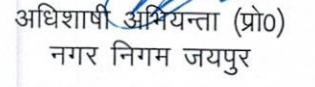 अधिशाषी अभियन्ता (प्रो0)
नगर निगम जयपुर